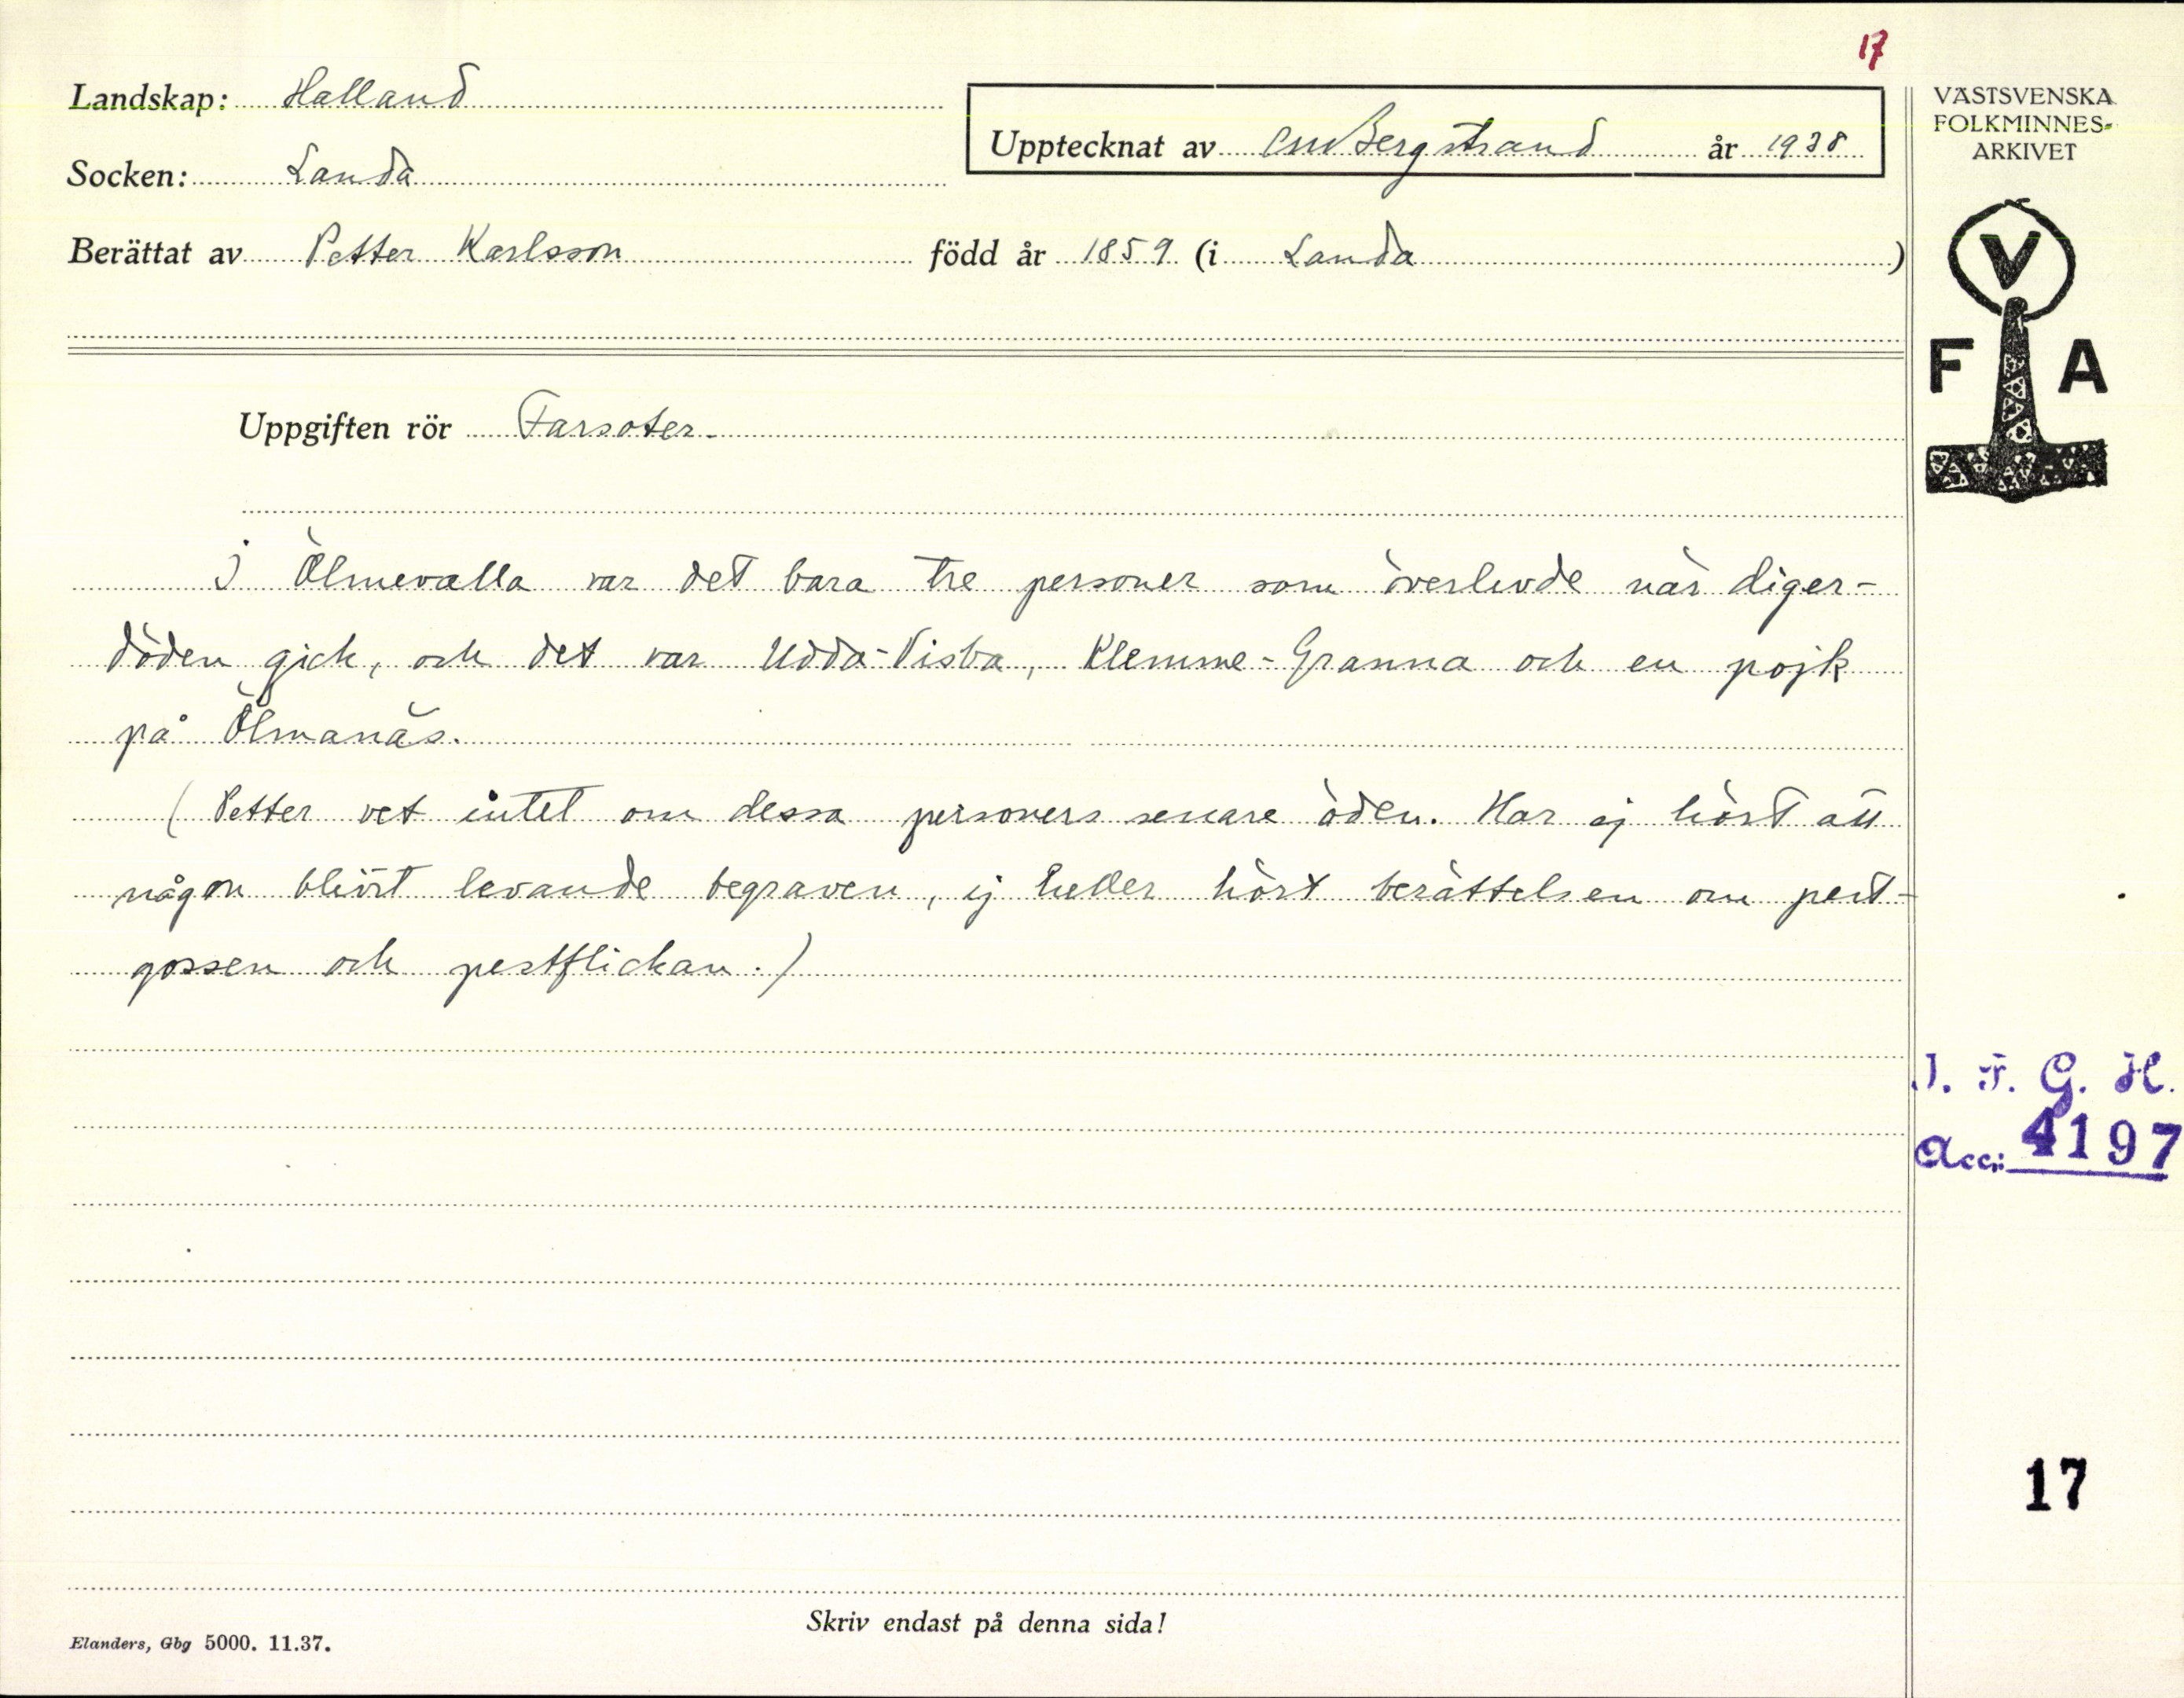 17
Landskap: Halland
Upptecknat av CMBergstrand år 1938
Socken: Landa
Berättat av Petter Karlsson född år 1859 (i Landa)
VÄSTSVENSKA
FOLKMINNES-
ARKIVET
V
F A
Uppgiften rör Farsoter.
I Ölmevalla var det bara tre personer som överlevde när diger-
döden gick, och det var Udda-Visba, Klemme-Granna och en pojk
på Ölmanäs.
(Petter vet intet om dessa personers senare öden. Har ej hört att
någon blivit levande begraven, ej heller hört berättelsen om pest-
gossen och pestflickan.)
I. F. G. H.
Acc: 4197
17
Skriv endast på denna sida!
Elanders, Gbg 5000. 11.37.